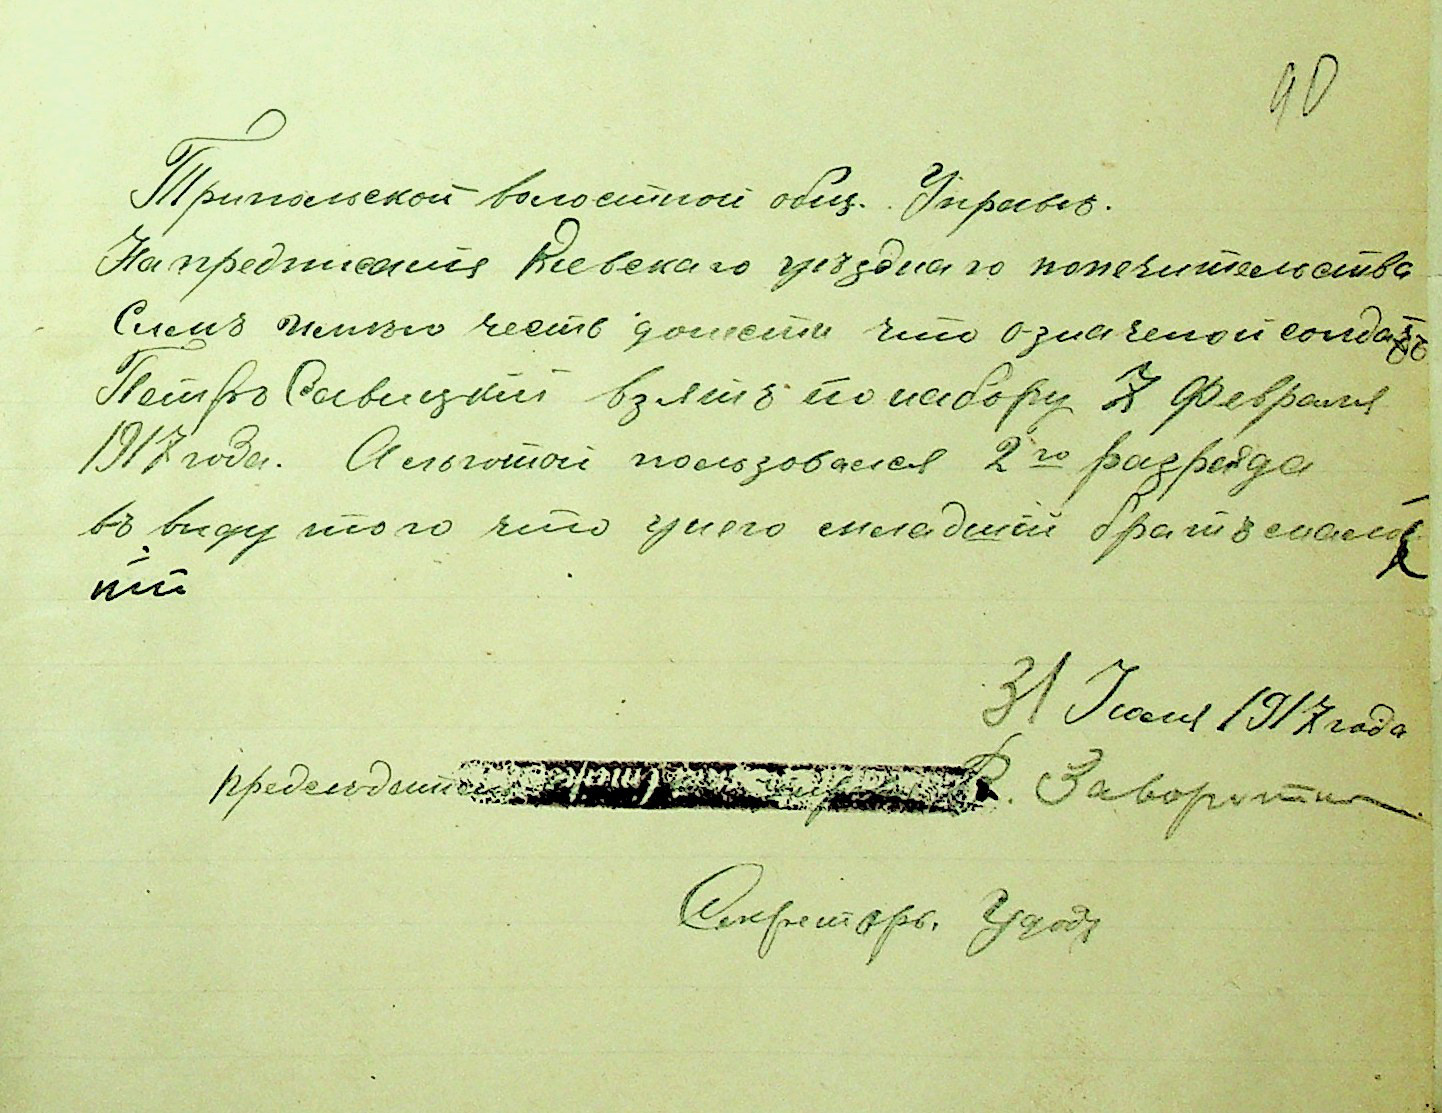 90
Трипольской волостной общ. Управѣ.
На предписания Киевскаго уѣзднаго попечительства
Симъ имѣю честь донести что означеной солдатъ
Петръ Савицкій взятъ по набору 7 Февраля
1917 года. А льготой пользовался 2го разряда
въ виду того что у него младшій братъ
31 Июля 1917 года
Секретарь. Удод